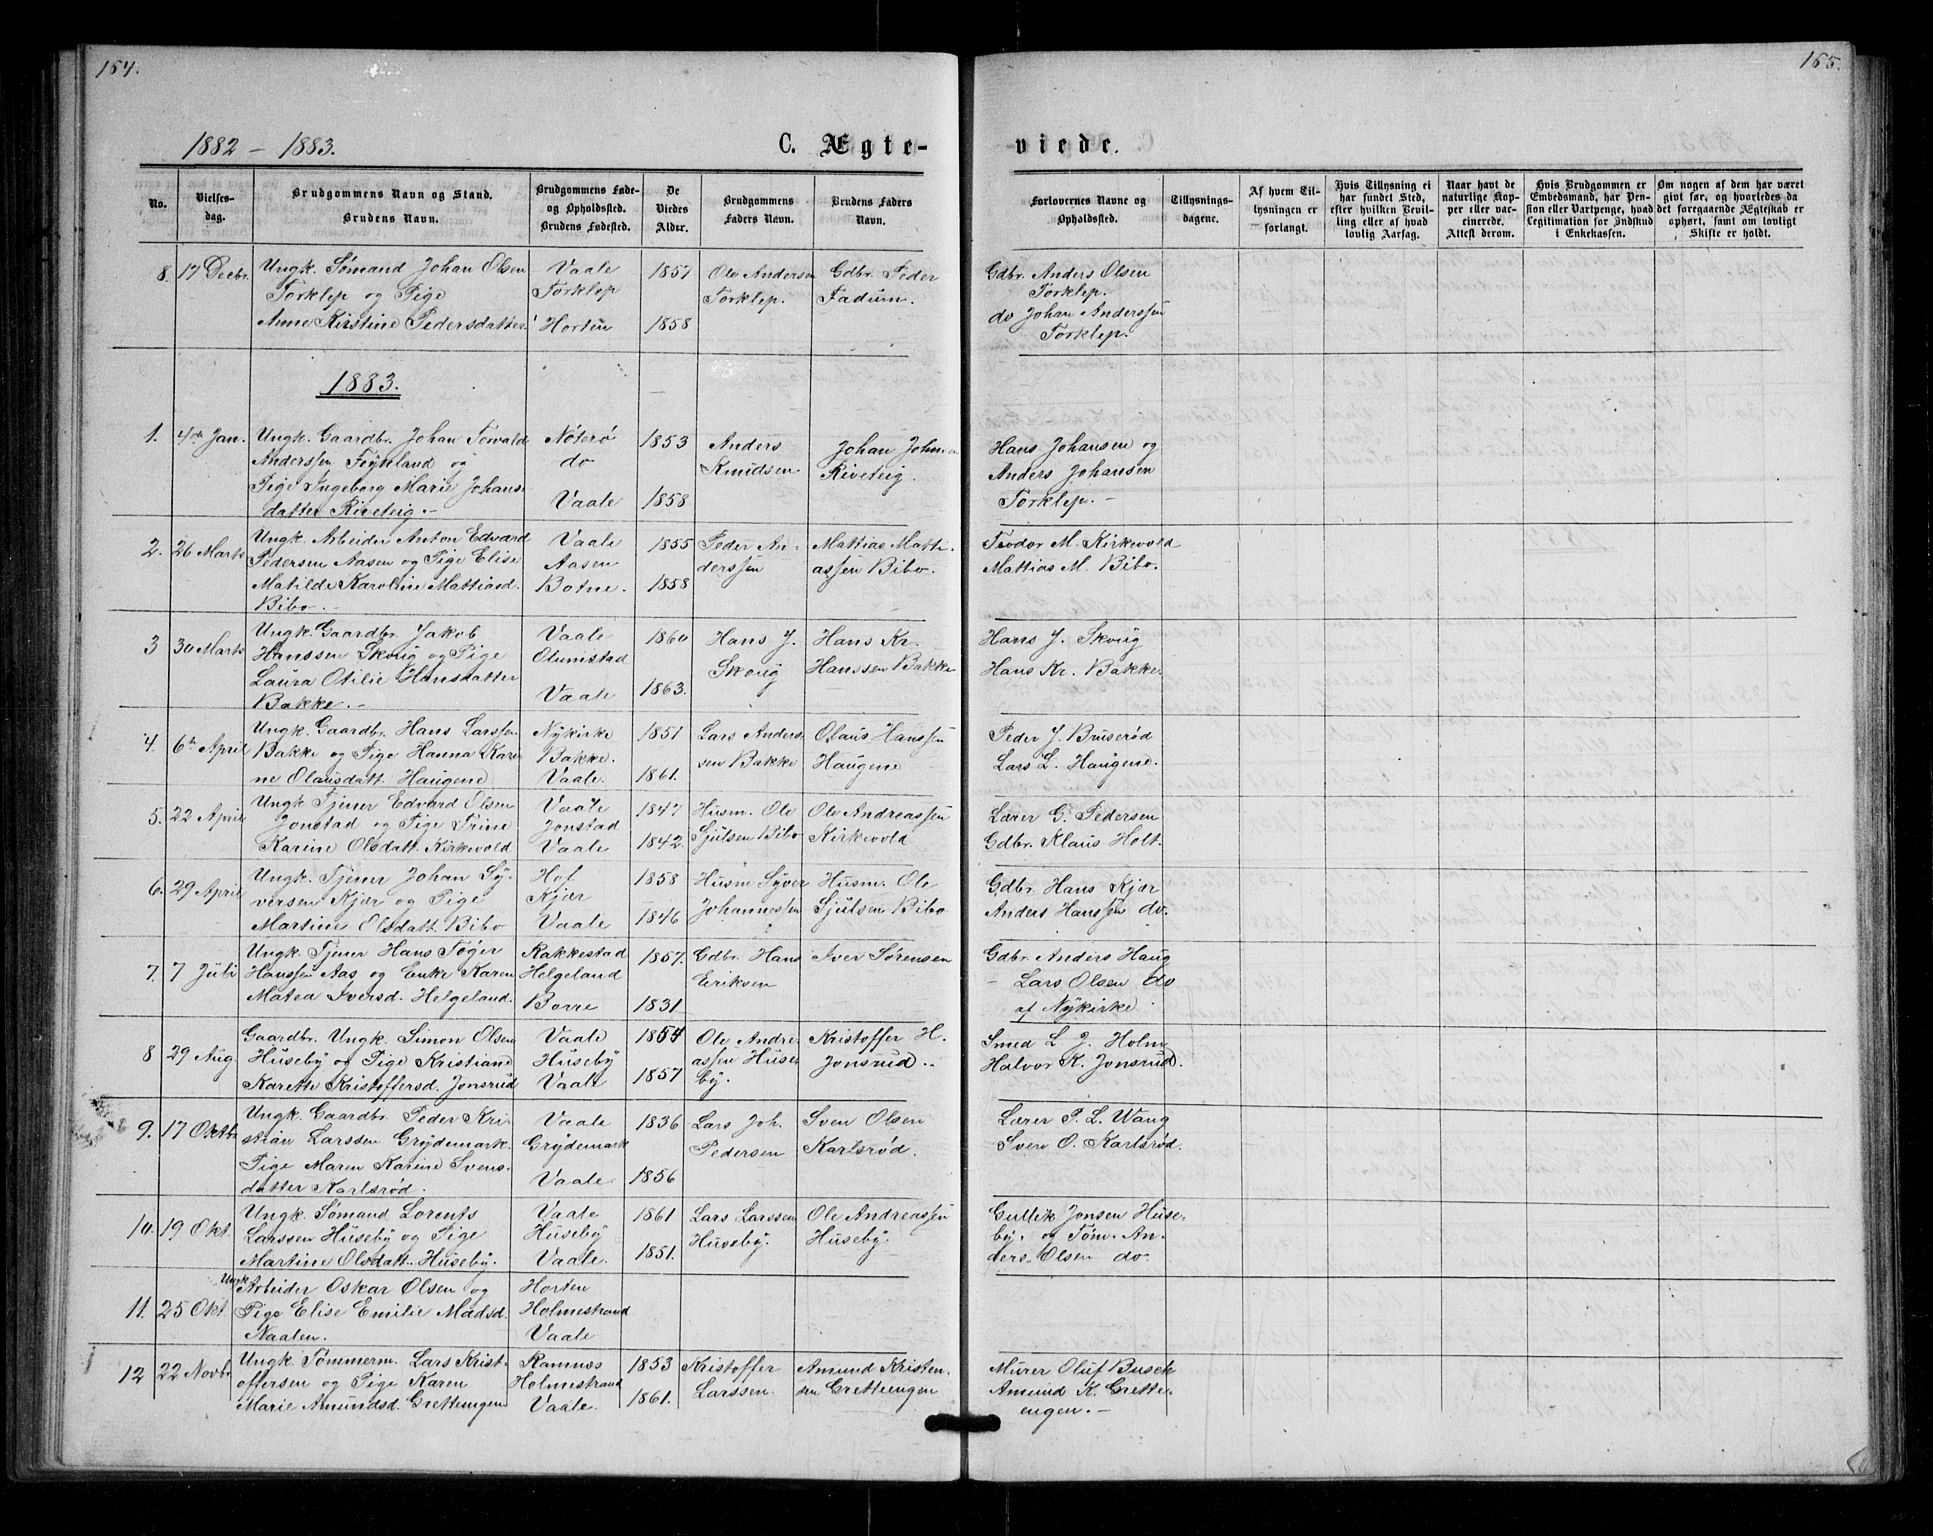 164.
165.
1882 - 1883.
C. Ægte-
viede.
No.
Vielses-
dag.
Brudgommens Navn og Stand.
Brudens Navn.
Brudgommens Føde-
og Opholdssted.
Brudens Fødested.
De
Viedes
Alder.
Brudgommens
Faders Navn.
Brudens Faders
Navn.
Forlovernes Navne og
Opholdssted.
Tillysnings-
dagene.
Af hvem Til-
lysningen er
forlangt.
Hvis Tillysning ei
har fundet Sted,
efter hvilken Bevil-
ling eller af hvad
lovlig Aarsag.
Naar havt de
naturlige Kop-
per eller vac-
cinerede.
Attest derom.
Hvis Brudgommen er
Embedsmand, har Pen-
sion eller Vartpenge, hvad
Legitimation for Indskud
i Enkekassen.
Om nogen af dem har været
givt før, og hvorledes da
det foregaaende Ægteskab er
ophørt, samt om lovligt
Skifte er holdt.
8. 17 Decbr. Ungk. Sømand Johan Olsen Vaale 1857 Ole Andersen Gdbr. Peder Gdbr. Anders Olsen
Torklep og Pige Torklep Torklep. Fadum. Torklep.
Anne Kirstine Pedersdatter Horten 1858 do Johan Anderssen
Torklep.
1883.
1. 4de Jan. Ungk. Gaardbr. Johan Torvald Nøterø 1853 Anders Johan Johnsen Hans Johansen og
Anderssen Føynland og do Knudsen Riveteig. Anders Johansen
Pige Ingeborg Marie Johans- Vaale 1858 Torklep. -
datter Riveteig. -
2. 26 Marts Ungk. Arbeider Anton Edvard Vaale 1855 Peder An- Mattias Matti- Teodor M. Kirkevold
Pedersen Aasen og Pige Elise Aasen derssen assen Bibo. Mattias M. Bibo.
Matilde Karoline Mattiasd. Botne. 1858
Bibo. -
3 30 Marts Ungk. Gaardbr. Jakob Vaale 1860 Hans J. Hans Kr. Hans J. Skoug
Hanssen Skoug og Pige Olumstad Skoug Hanssen Bakke Hans Kr. Bakke.
Laura Otilie Hansdatter Vaale 1863.
Bakke. -
4. 6te April Ungk. Gaardbr. Hans Larssen Nykirke 1851 Lars Anders- Olaus Hanssen Peder J. Bruserød
Bakke og Pige Hanna Kari- Bakke. sen Bakke Haugene Lars L. Haugene.
ne Olausdatt. Haugene Vaale. 1861.
5. 22 April Ungk. Tjener Edvard Olsen Vaale 1847 Husm. Ole Ole Andreassen Lærer G. Pedersen
Jonstad og Pige Trine Jonstad Sjulsen Bibo Kirkevold Gdbr. Klaus Holt.
Karine Olsdatt. Kirkevold Vaale 1842.
6. 29 April Ungk. Tjener Johan Sy- Hof 1858 Husm Syver Husm. Ole Gdbr. Hans Kjær
versen Kjær og Pige Kjær Johannessen Sjulsen Bibo Anders Hanssen do.
Martine Olsdatt. Bibo Vaale 1846
7. 7 Juli Ungk. Tjener Hans Toger Rakkestad 1857. Gdbr. Hans Iver Sørensen Gdbr. Anders Haug
Hanssen Aas og Enke Karen Helgeland Eriksen - Lars Olsen do
Matea Iversd. Helgeland. Borre 1831 af Nykirke
8 29 Aug. Gaardbr. Ungk. Simon Olsen Vaale 1854 Ole Andre- Kristoffer H. Smed L. J. Holm
Huseby og Pige Kristiane Huseby assen Huse- Jonsrud. Halvor K. Jonsrud.
Karette Kristoffersd. Jonsrud Vaale 1857 by.
9. 17 Oktbr. Ungk. Gaardbr. Peder Kri- Vaale 1836 Lars Joh. Sven Olsen Lærer P. L. Wang
stian Larssen Grydemark. Grydemark Pedersen Karlsrød. Sven O. Karlsrød.
Pige Maren Karine Svens- Vaale 1856
datter Karlsrød.
10. 19 Okt. Ungk. Sømand Lorents Vaale 1861 Lars Larssen Ole Andreassen Gullik Jonsen Huse-
Larssen Huseby og Pige Huseby Huseby. Huseby. by. og Tøm. An-
Martine Olsdatt. Huseby. Vaale. 1851. ders Olsen do.
11. 25 Okt. Ungk. Arbeider Oskar Olsen og Horten
Pige Elise Emilie Madsd. Holmestrand
Naalen. Vaale
12 22 Novbr. Ungk. Tømmerm. Lars Krist- Ramnes 1853 Kristoffer Amund Kristen- Murer Oluf Busch
offersen og Pige Karen Holmestrand Larssen. sen Grettengen Amund K. Grette-
Marie Amundsd. Grettengen Vaale. 1861. engen. -